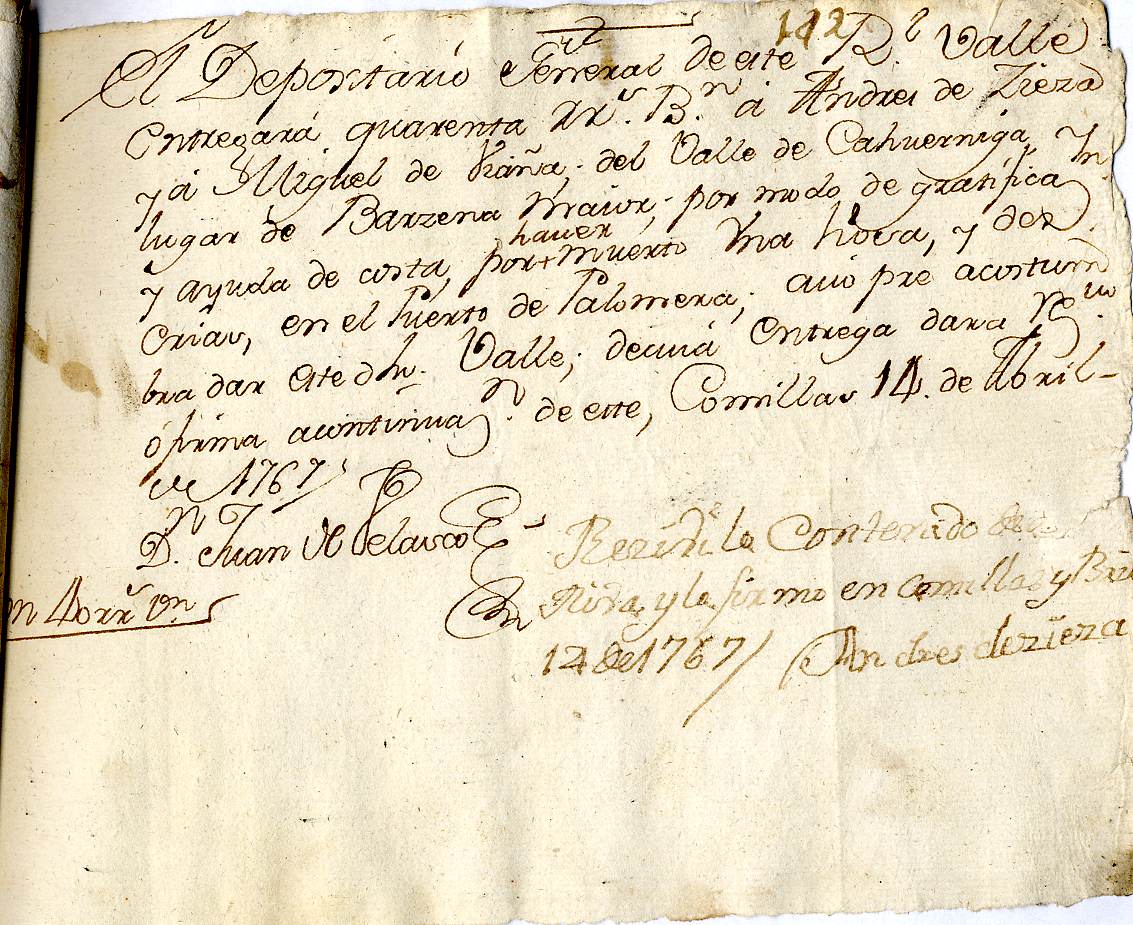 142
El Depositario General de este Rl Valle
entregará quarenta rrs. Bn. á Andres de Zieza
y á Miguel de Viaña, del Valle de Cahuerniga, y
lugar de Barzena maior; por modo de gratifican
y ayuda de costa, por + muerto Vna
haver
crias, en el Puerto de Palomera; acostum
bra dar este dho. Valle; de cuia entrega dara
ó firma acontinuan. de este, Comillas 14. de Abril-
de 1767
Dn. Juan de Velasco
Rezivi lo Contenido
y lo firmo en comillas y Bril
14 de 1767 Andres de zieza
on 40 rrs vn.